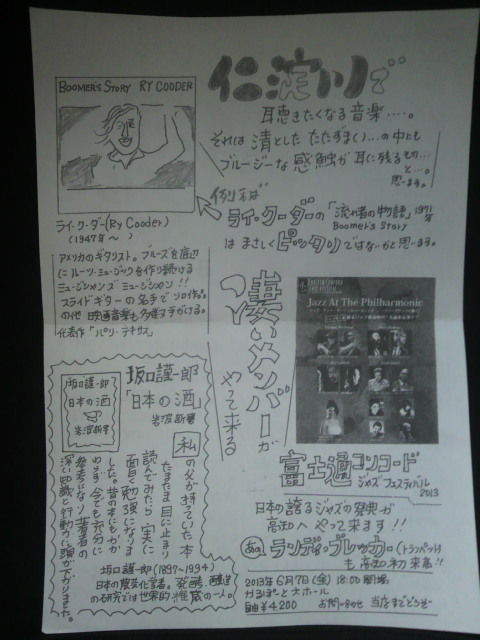 仁淀川で
耳聴きたくなる音楽‥‥。
それは 清とした たたずまい…の中にも
ブルージーな 感触が 耳に残るもの…
と…。
思います。
例えば
ライ・クーダーの「流れ者の物語」1971年
Boomer's Story
は まさしく ピッタリ ではないかと思います。
BOOMER'S STORY RY COODER
ライ・クーダー(Ry Cooder)
(1947年〜 )
アメリカのギタリスト。ブルースを底辺
にルーツ・ミュージックを作り続ける
ミュージシャンズ ミュージシャン!!
スライドギターの名手で ソロ作品
の他 映画音楽も多数手がける。
代表作「パリ・テキサス」
凄いメンバーが
やって来る
Jazz At The Philharmonic
富士通コンコード
ジャズ フェスティバル
2013
日本の誇るジャズの祭典が
高知へ やって来ます!!
あのランディ・ブレッカー(トランペット)
も 高知初来高!!
2013年 6月7日(金) 18:00開場
かるぽーと大ホール
前売 ¥4,200 お問い合わせ 当店までどうぞ
坂口謹一郎
「日本の酒」
岩波新書
坂口謹一郎
日本の酒
岩波新書
私の父が持っていた本
たまたま目に止まり
読んでみたら 実に
面白く勉強になりま
した。昔の本にもかか
わらず 今でも充分に
参考になり著者の
深い知識と行動力に頭が下がりました。
坂口謹一郎(1897〜1994)
日本の農芸化学者。発酵、醸造
の研究では世界的権威の一人。